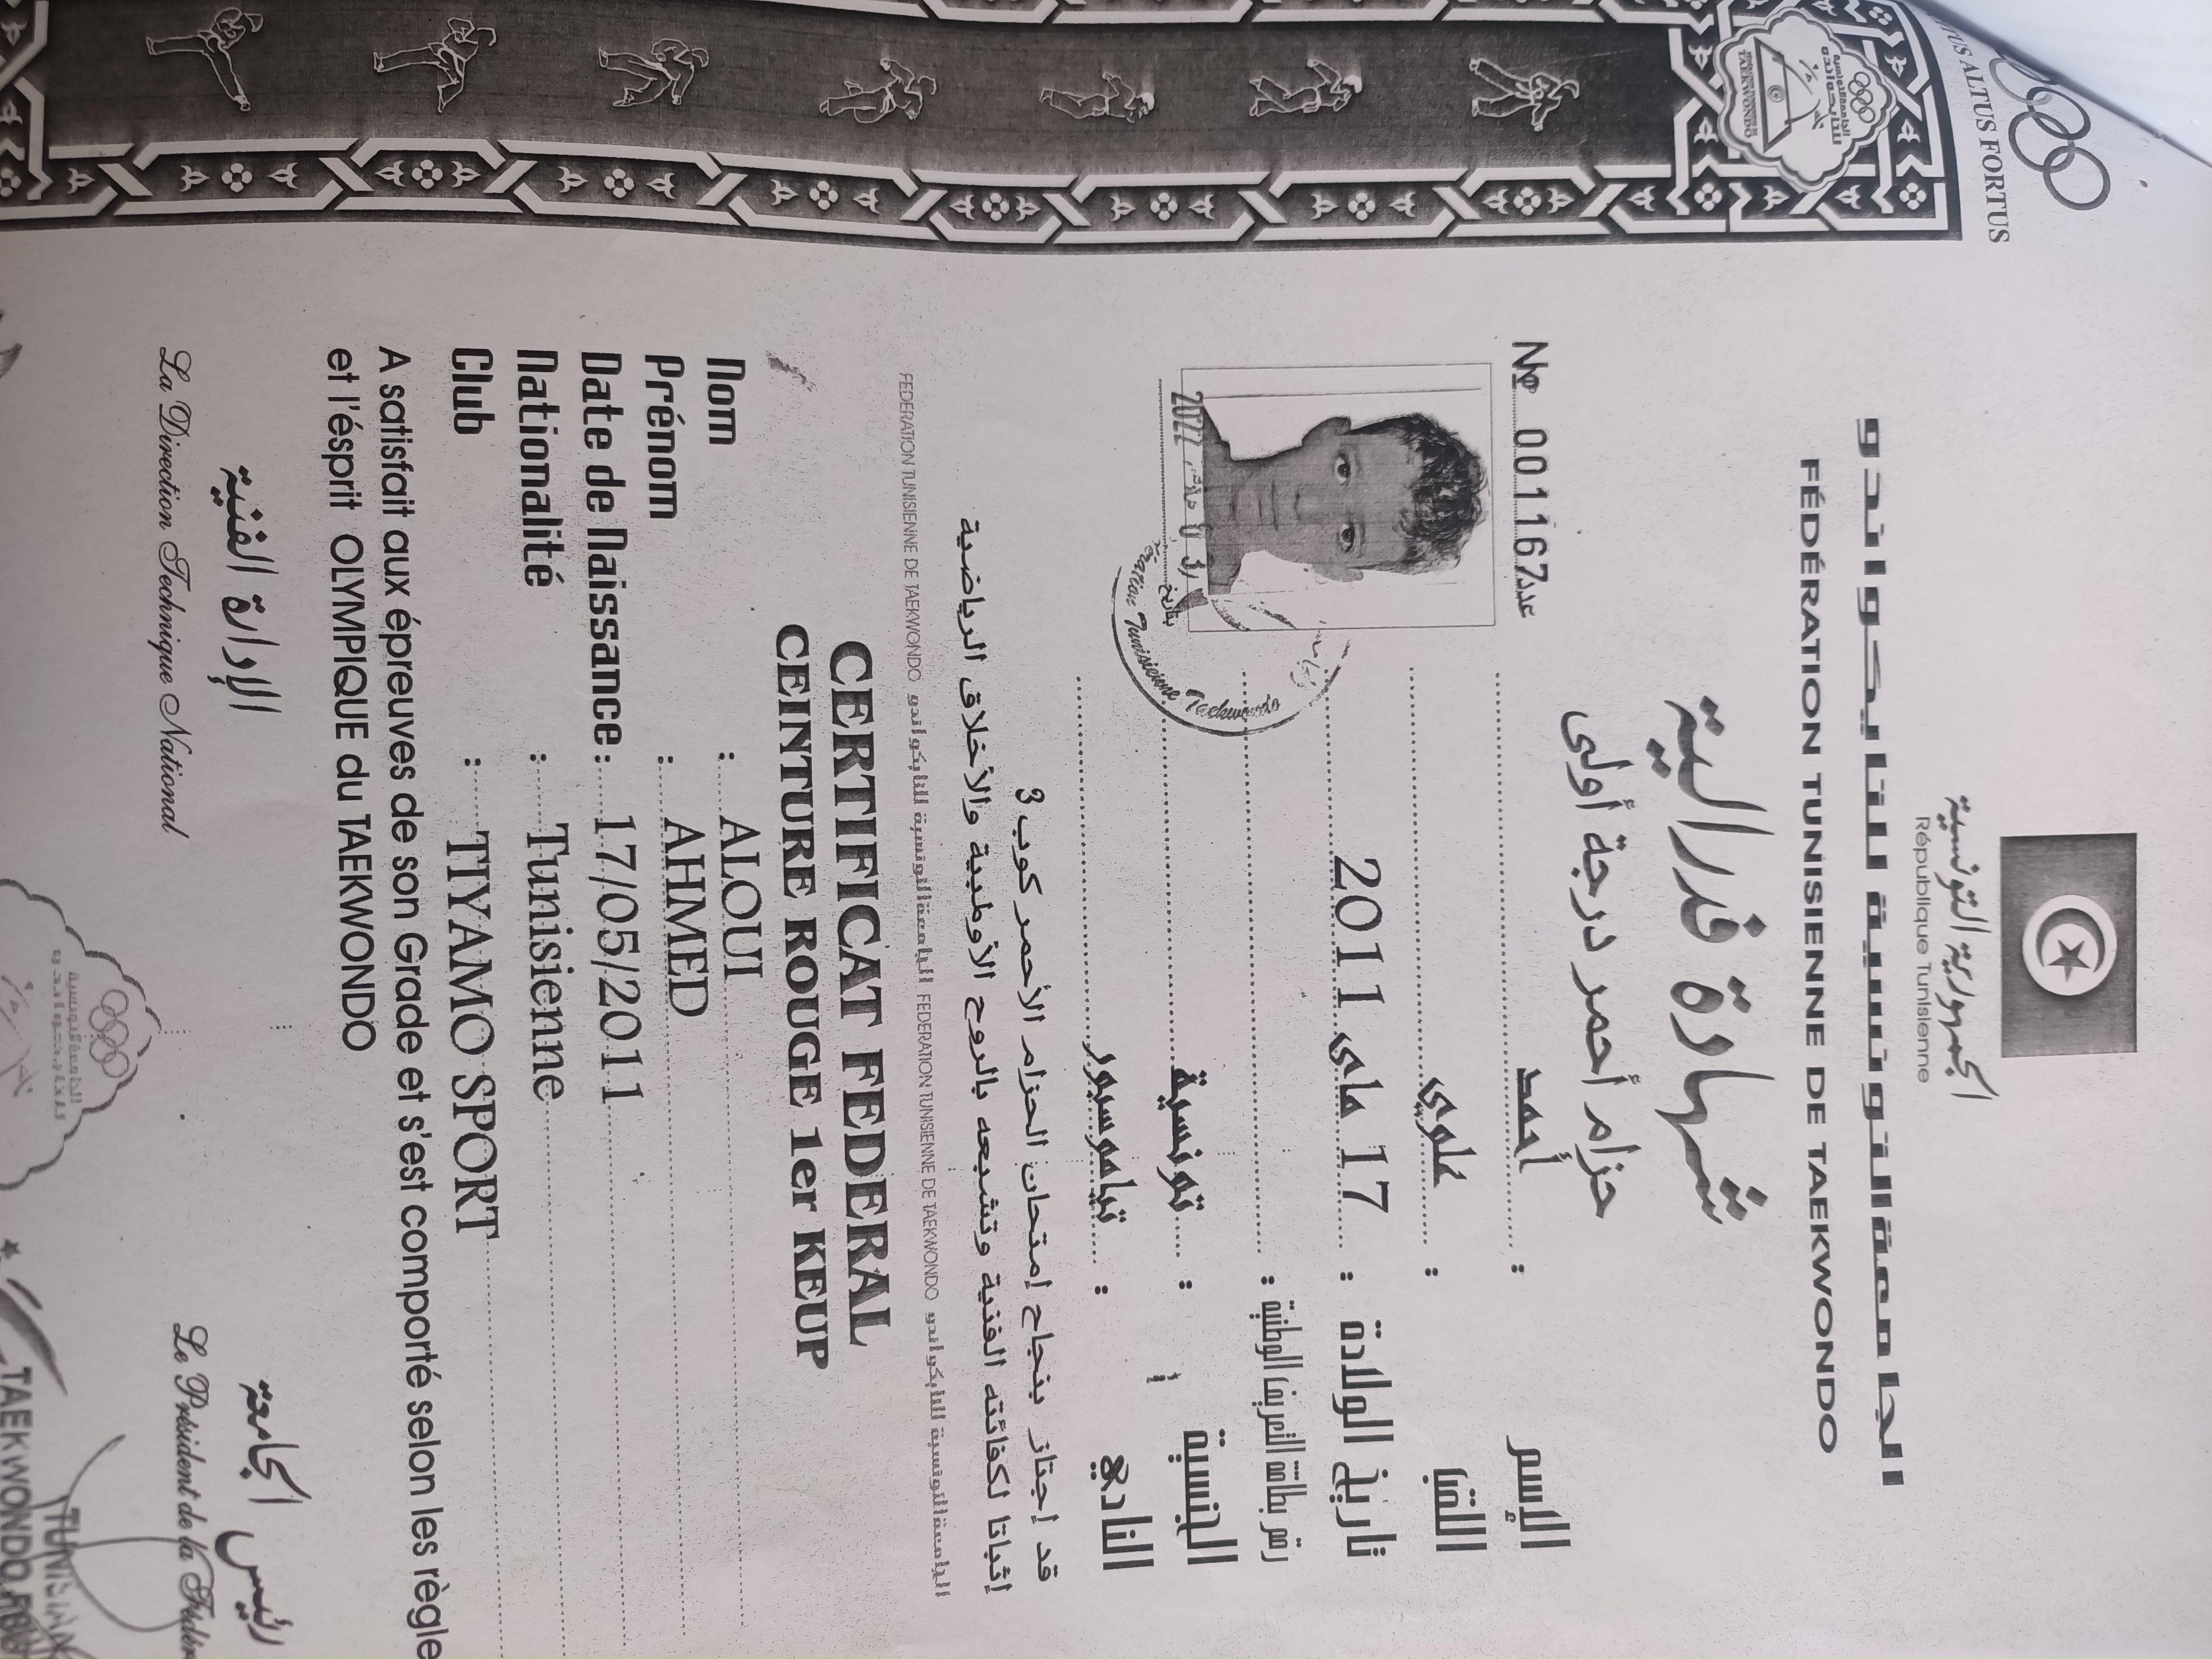 ALTUS FORTUS
الجمهورية التونسية
République Tunisienne
الجامعة التونسية للتايكواندو
FÉDÉRATION TUNISIENNE DE TAEKWONDO
شهادة فدرالية
حزام أحمر درجة أولى
№ 001167 عدد
الإسم : أحمد
اللقب : علوي
تاريخ الولادة : 17 ماي 2011
رقم بطاقة التعريف الوطنية :
الجنسية : تونسية
النادي : تيامو سبور
بتاريخ
2022
Tunisienne Taekwondo
قد إجتاز بنجاح إمتحان الحزام الأحمر كوب 3
إثباتا لكفائته الفنية وتشبعه بالروح الأولمبية والأخلاق الرياضية
FEDERATION TUNISIENNE DE TAEKWONDO الجامعة التونسية للتايكواندو FEDERATION TUNISIENNE DE TAEKWONDO الجامعة التونسية للتايكواندو
CERTIFICAT FEDERAL
CEINTURE ROUGE 1er KEUP
Nom : ALOUI
Prénom : AHMED
Date de Naissance : 17/05/2011
Nationalité : Tunisienne
Club : TIYAMO SPORT
A satisfait aux épreuves de son Grade et s'est comporté selon les règle
et l'ésprit OLYMPIQUE du TAEKWONDO
الإدارة الفنية
La Direction Technique National
رئيس الجامعة
Le Président de la
TUNISIAN
TAEKWONDO